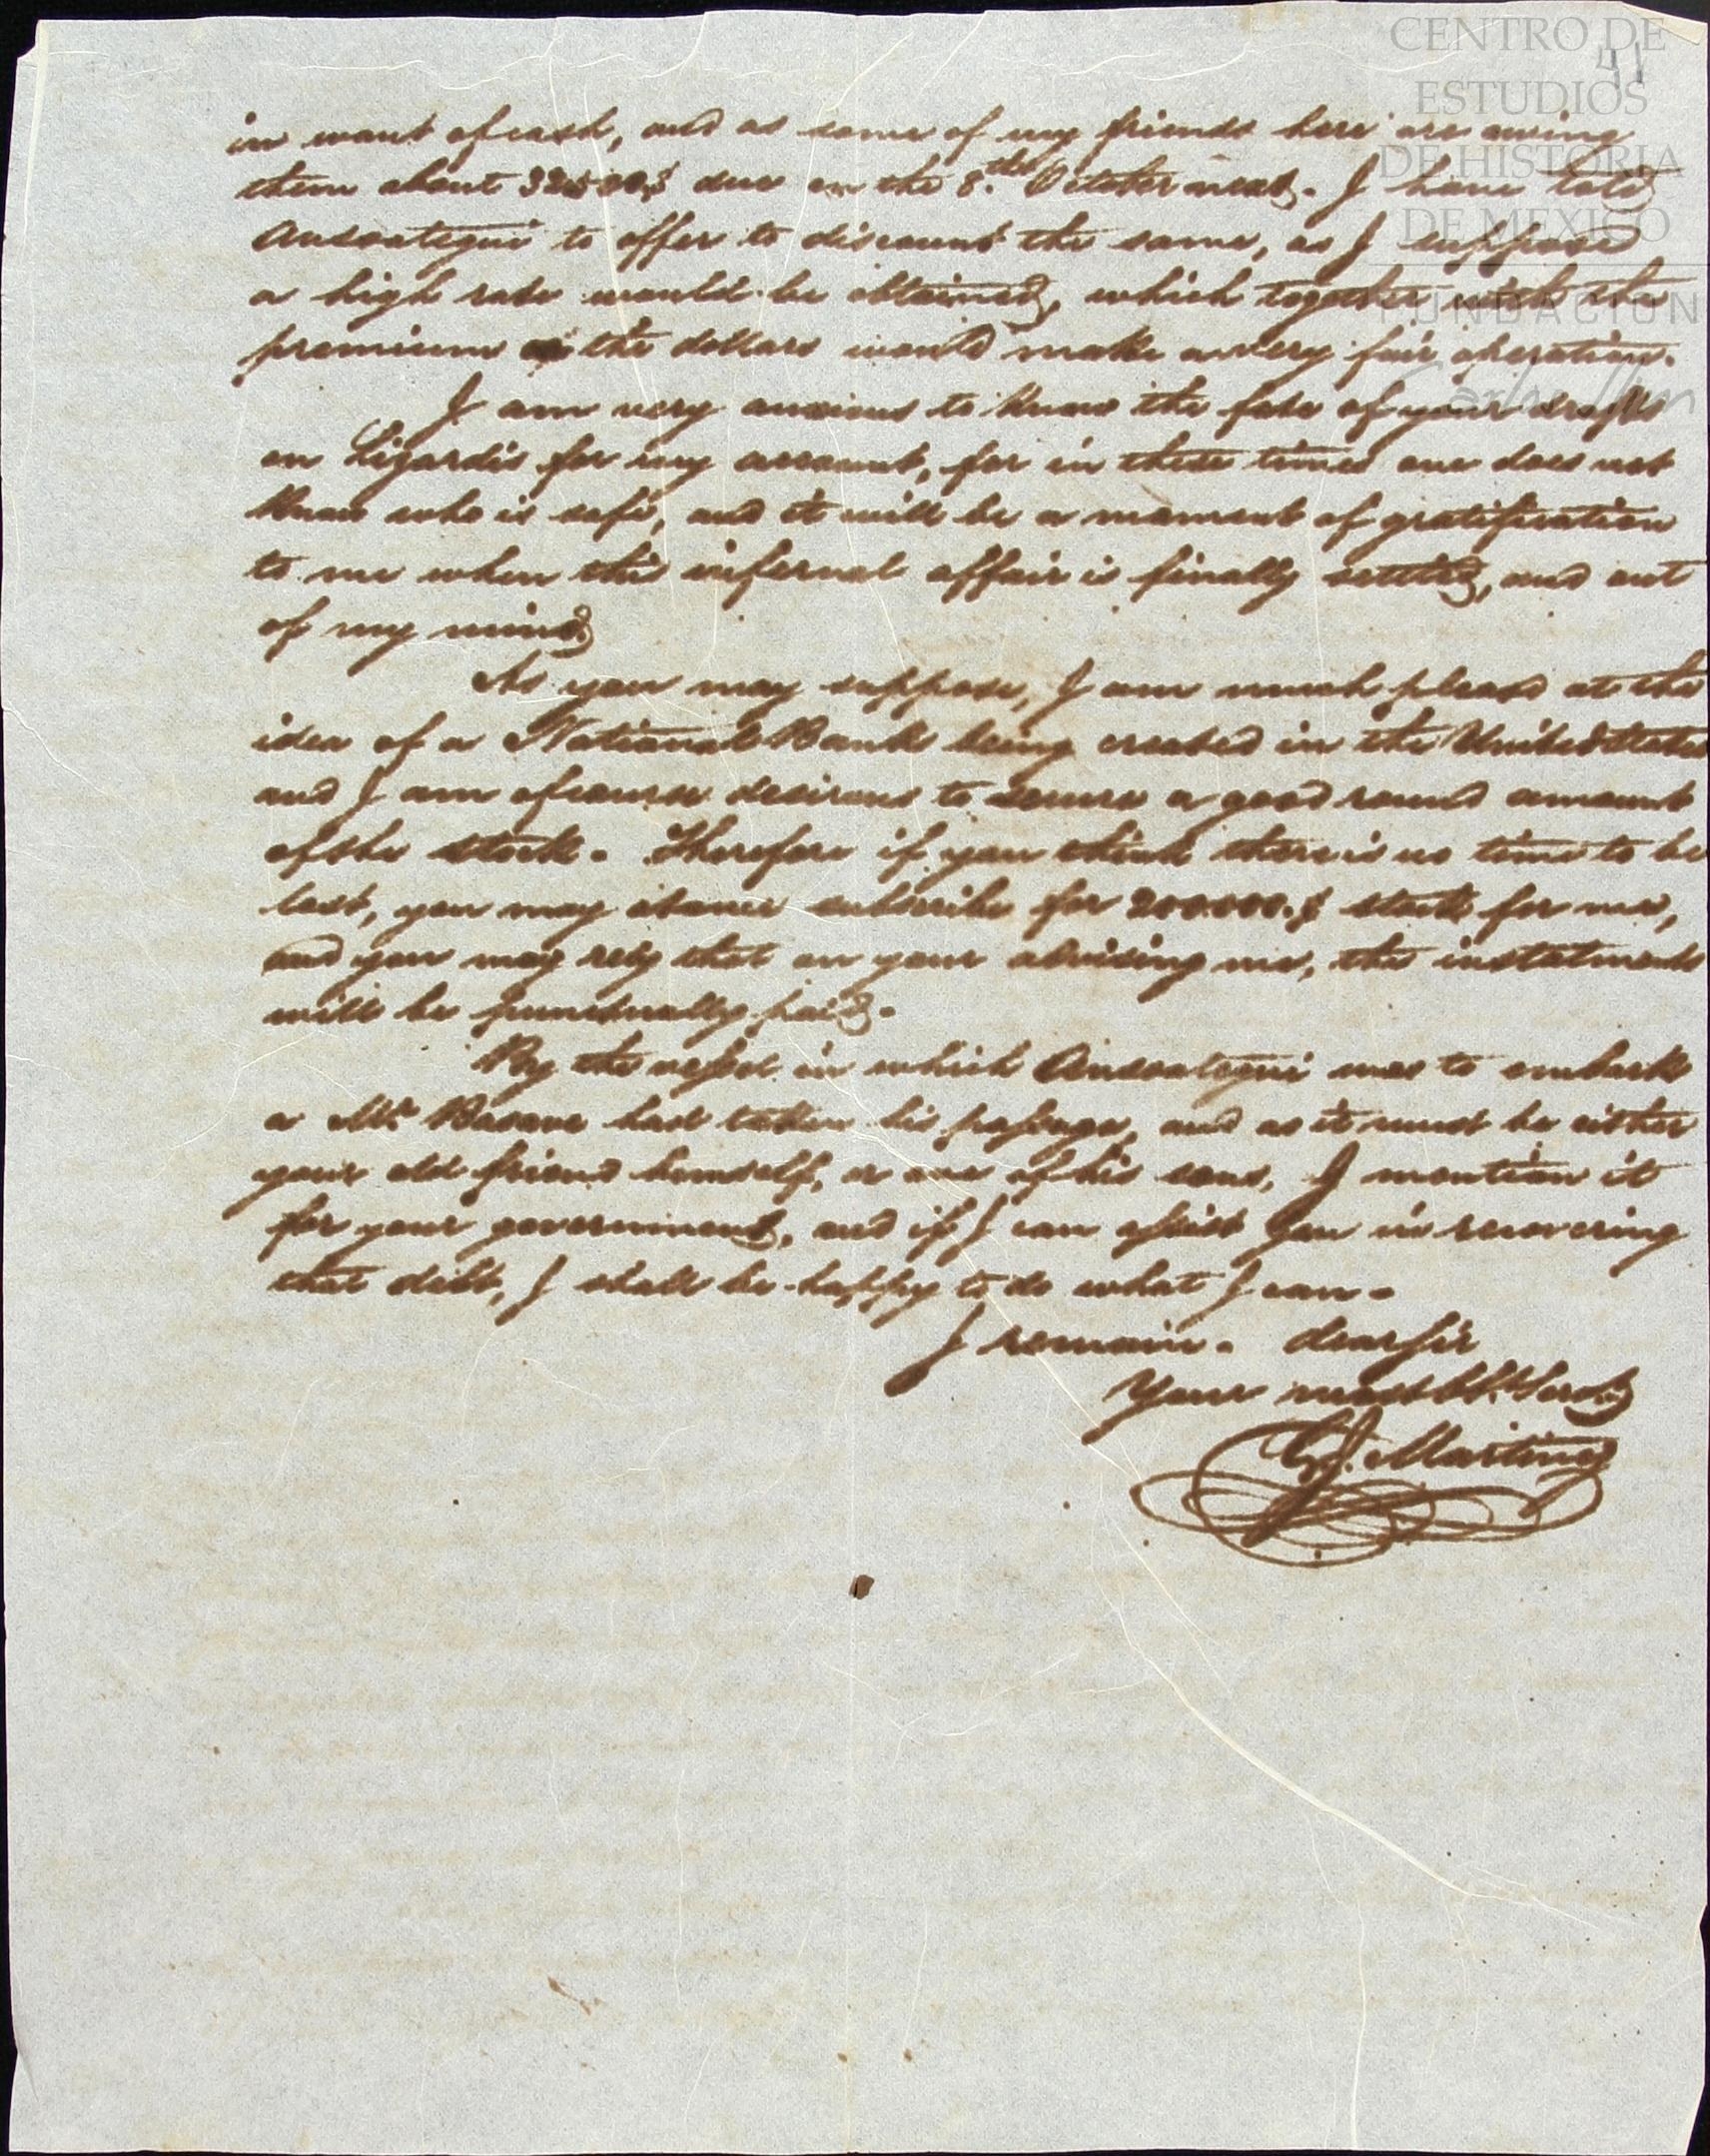 CENTRO DE
ESTUDIOS
DE HISTORIA
DE MEXICO
FUNDACION
41
in want of cash, and as some of my friends here are owing
them about 32500$ due on the 8.th October next. I have told
Ansoategui to offer to discount the same, as I supposed
a high rate would be obtained, which together with the
premium on the dollars would make a very fair operation.
I am very anxious to know the fate of your drafts
on Lizardis for my account, for in these times one does not
know who is safe, and it will be a moment of gratification
to me when this infernal affair is finally settled, and out
of my mind
As you may suppose, I am much pleased at the
idea of a National Bank being created in the United States
and I am of course desirous to secure a good round amount
of the stock. Therefore if you think there is no time to be
lost, you may at once subscribe for 200.000.$ stock for me,
and you may rely that on your advising me, the instalments
will be punctually paid.
By the vessel in which Ansoategui was to embark
a Mr. Basave had taken his passage, and as it must be either
your old friend himself, or one of his sons, I mention it
for your government, and if I can assist you in recovering
that debt, I shall be happy to do what I can.
I remain. dear Sir
Your most Obt. Servt.
Martinez